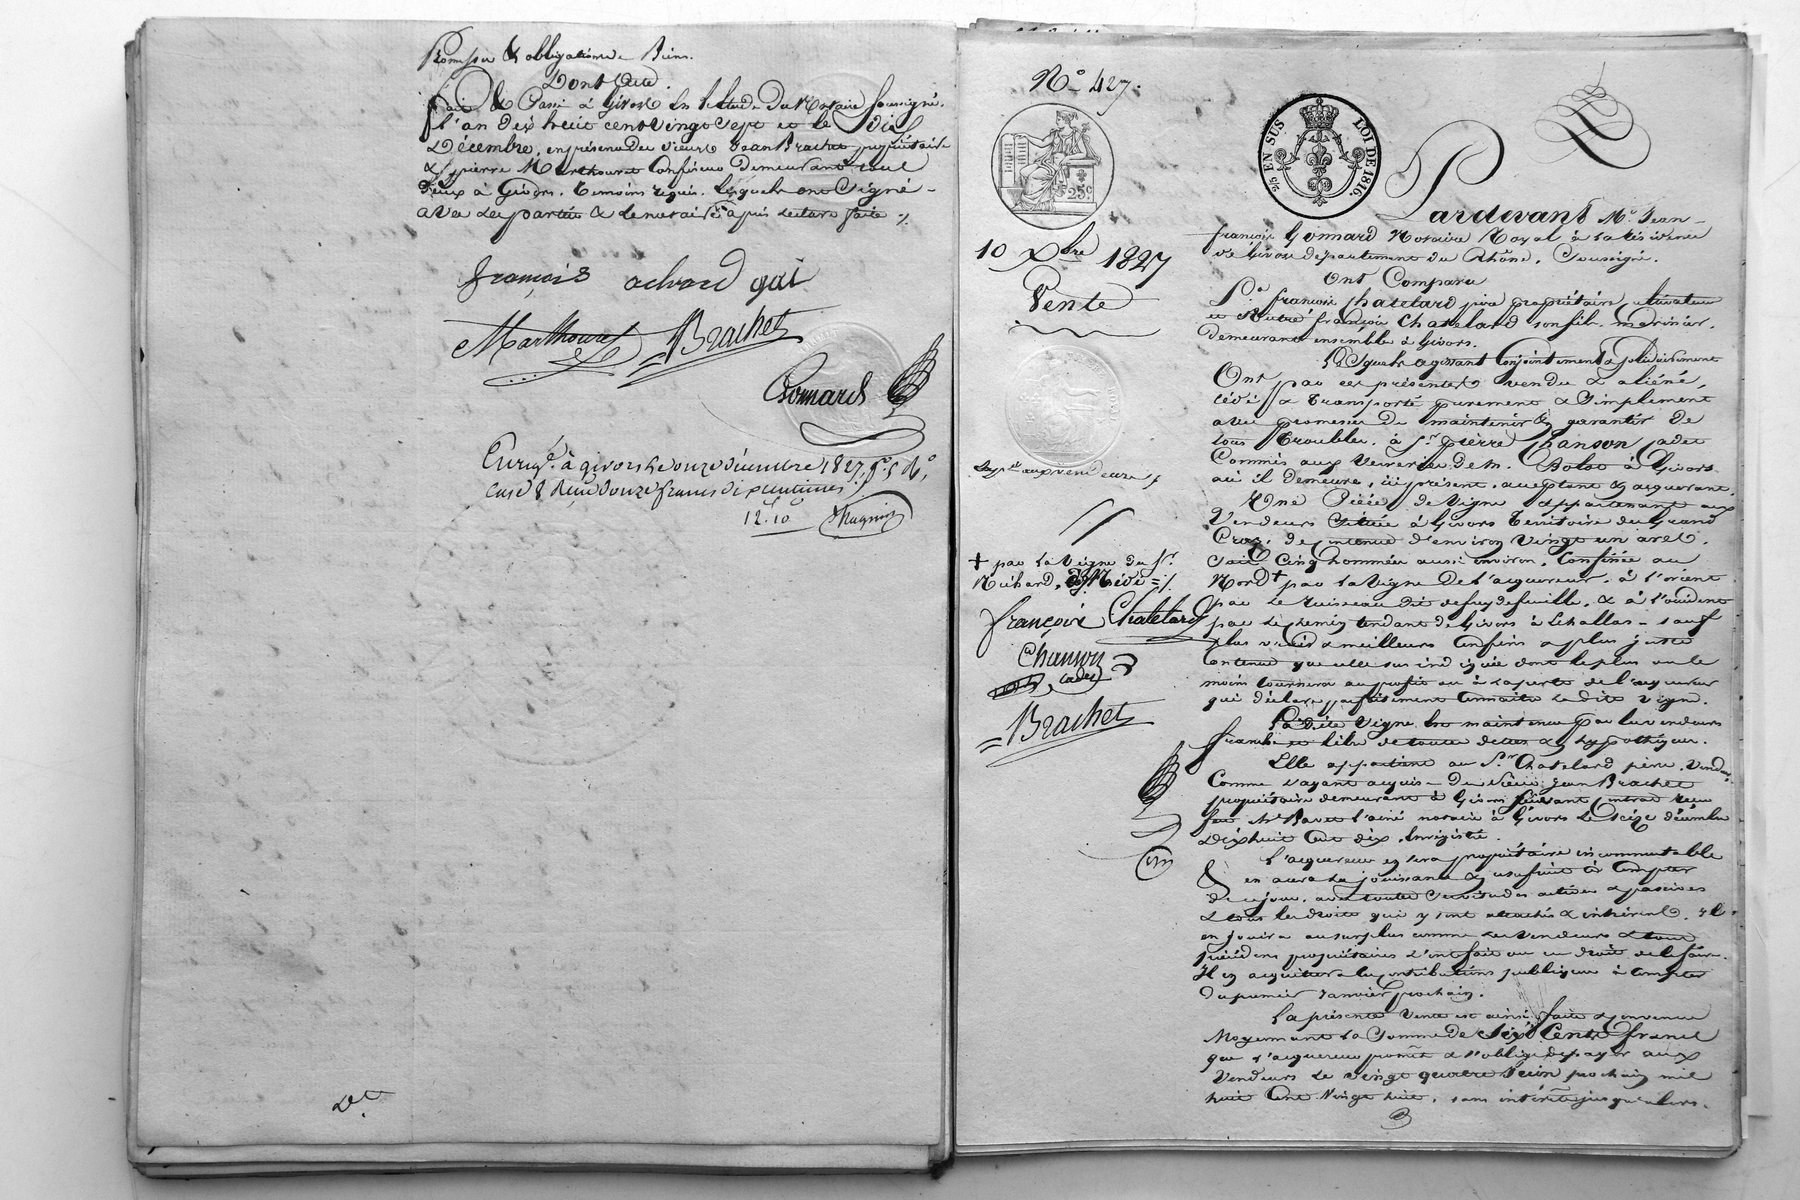 Promesse & obligation de Biens.
Dont acte.
fait & Passé à Givors En l'Etude Du Notaire soussigné.
l'an dix huit cent vingt sept et le dix
Décembre, en présence des sieurs Jean Brachet propriétaire
& pierre Marthouret Confiseur Demeurant tout
deux à Givors. Temoins requis. lesquels ont signé
avec les parties & le notaire après lecture faite ./.
françois achard gai
Marthouret Brachet
Gonnard
Enregé. à givors le onze décembre 1827. fo. 5 Ro.
case 8 Reçu douze francs dix centimes
12.10 Magnin
No. 427.
25c
10 Xbre 1827
Vente
+ par la Vigne du Sr.
françois Chatelard
Chanson
cadet
Brachet
2/5 EN SUS LOI DE 1816.
Pardevant Me. Jean-
françois Gonnard Notaire Royal à la résidence
de Givors département du Rhône, Soussigné.
Ont Comparu
Sr. françois Chatelard père propriétaire cultivateur
et autre françois Chatelard son fils, marinier,
demeurants ensemble à Givors.
Lesquels agissant Conjointement & solidairement
Ont par ces présentes vendu & aliéné,
cédé & transporté purement & simplement
avec promesse de maintenir & garantir de
tous troubles. à Sr. pierre Chanson cadet
Commis aux Verreries de M. Bolot à Givors
où il demeure, ici présent, acceptant & acquerant.
Une Pièce de Vigne appartenant aux
Vendeurs Située à Givors Territoire du Grand
Croz, de contenue d'environ vingt un ares,
soit Cinq hommées aussi environ, Confinée au
Nord + par la Vigne de l'acquereur. à l'orient
par le ruisseau dit de freydefeuille, & à l'occident
par le chemin tendant de Givors à Echallas - sauf
plus vrais & meilleurs Confins & plus juste
Contenue que celle sus indiquée dont le plus ou le
moins tournera au profit ou à la perte de l'acquereur
qui déclare parfaitement Connaitre ladite Vigne.
Ladite Vigne est maintenue par les vendeurs
franche et libre de toute dettes & hypothèques.
Elle appartient au Sr. Chatelard père, Vendeur
Comme l'ayant acquis du sieur Jean Brachet
propriétaire demeurant à Givors suivant contrat reçu
par Me Bavet l'ainé notaire à Givors le seize décembre
Dix huit Cent dix, Enregistré.
L'acquereur en sera propriétaire incommutable
& en aura la jouissance & usufruit à Compter
de ce jour, avec toutes servitudes actives & passives
& tous les droits qui y sont attachés & inhérents. Il
en jouira au surplus comme les Vendeurs & tous
précédens propriétaires l'ont fait ou eu droit de le faire.
Il en acquittera les contributions publiques à Compter
du premier Janvier prochain.
La présente Vente est ainsi faite & convenue
Moyennant la Somme de Six Cents francs
que l'acquereur promet & s'oblige de payer aux
Vendeurs le vingt quatre Juin prochain mil
huit Cent Vingt huit, sans intérêts jusqu'alors.